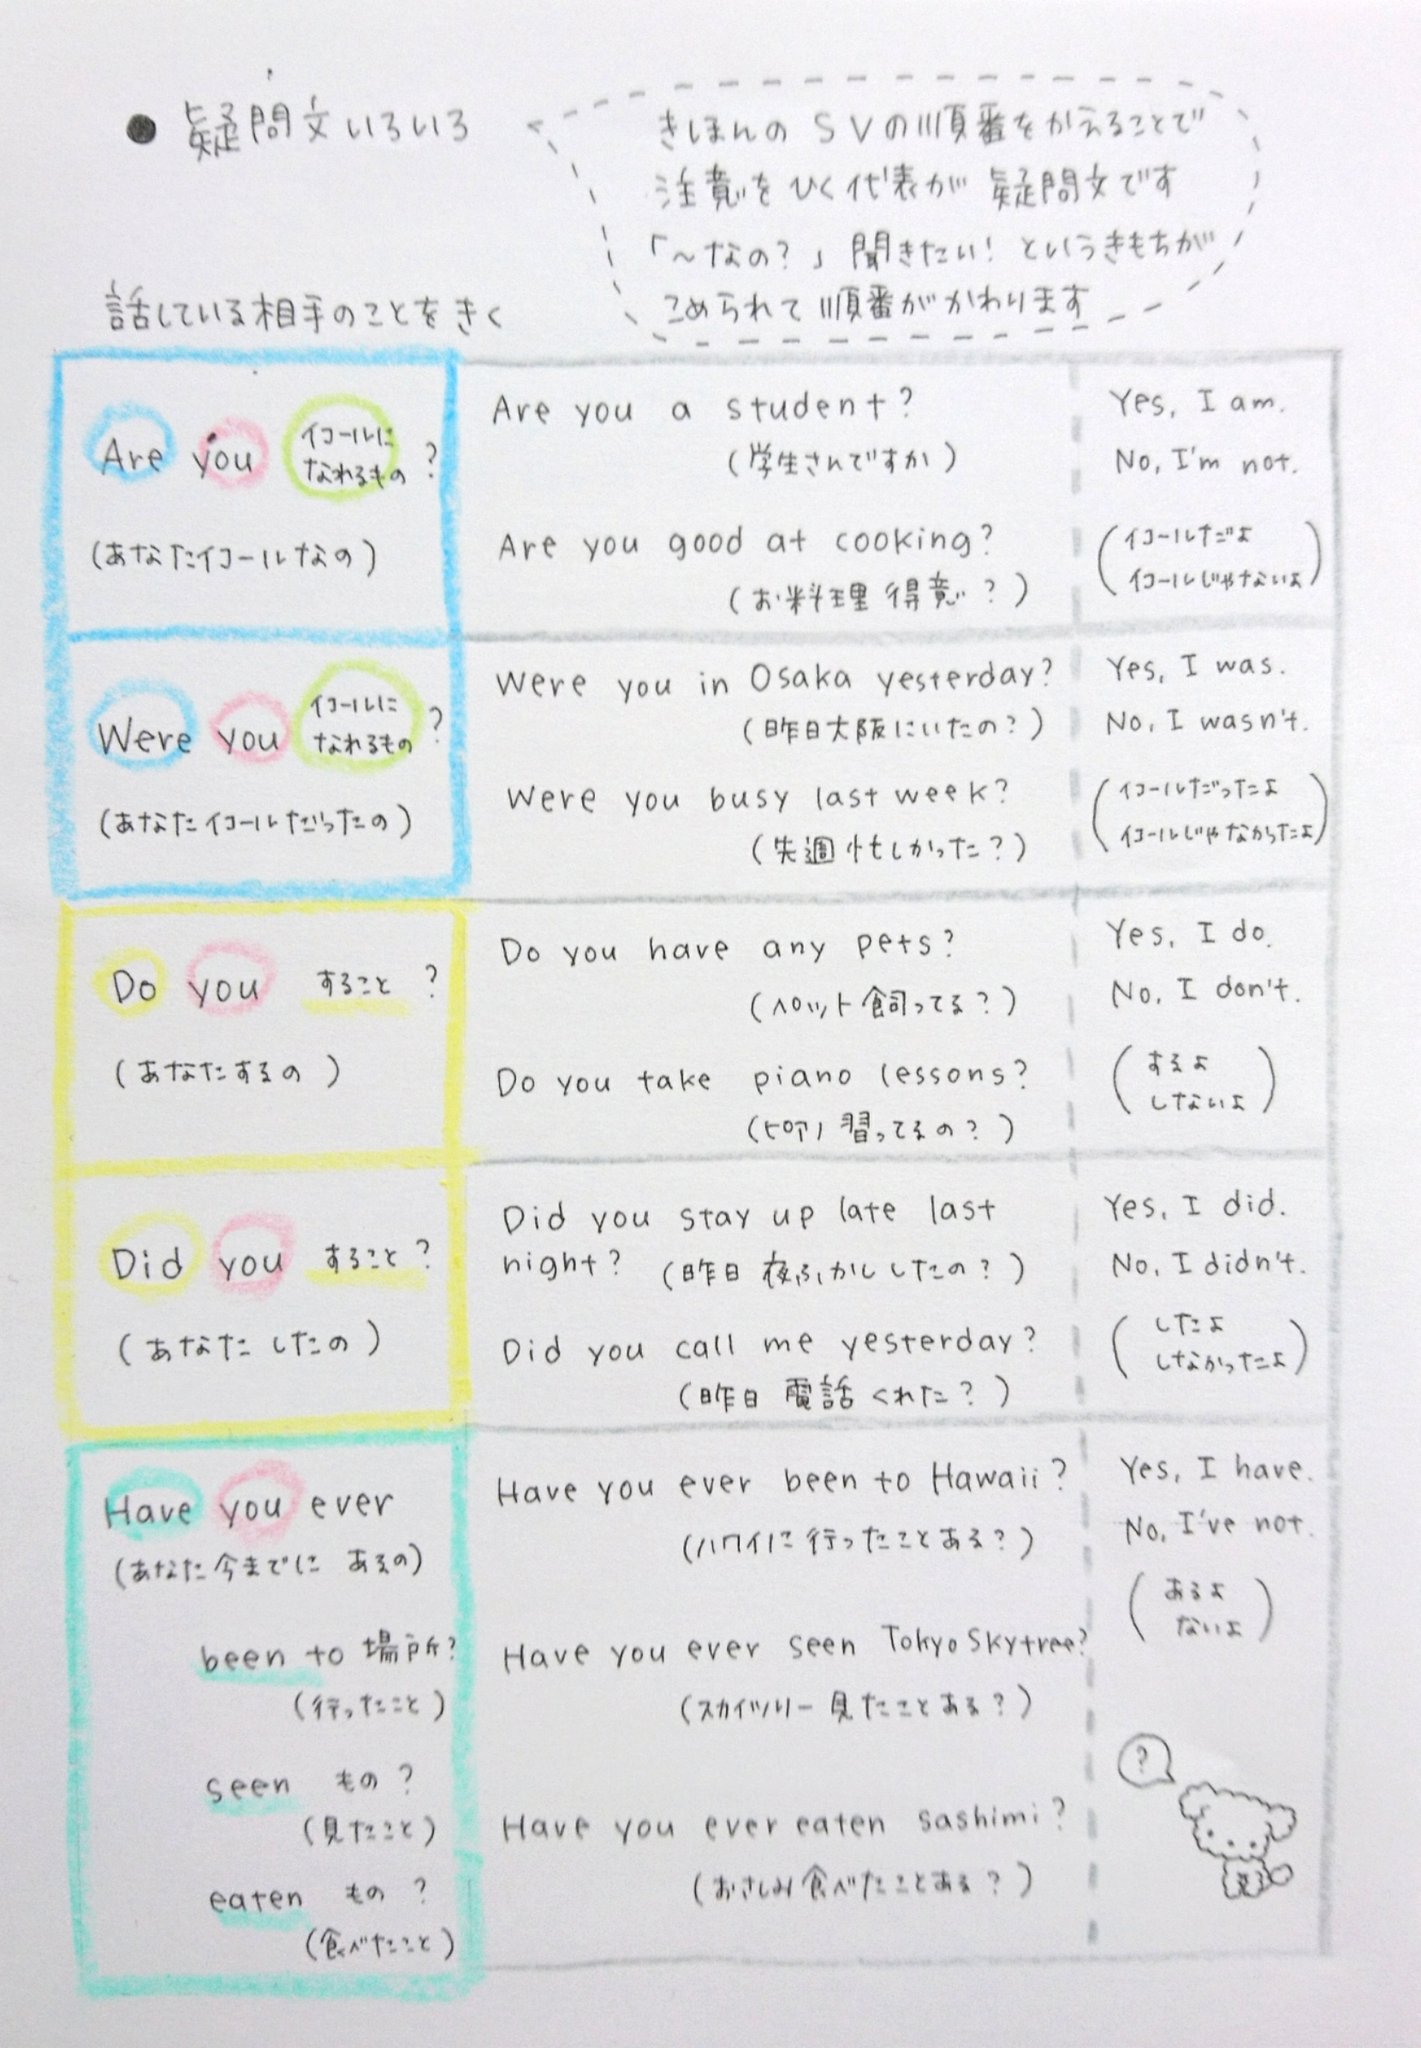 ● 疑問文いろいろ
きほんの SVの順番をかえることで
注意をひく代表が 疑問文です
「～なの?」聞きたい! というきもちが
こめられて順番がかわります
話している相手のことをきく
Are you イコールに
なれるもの ?
(あなたイコールなの)
Are you a student?
(学生さんですか)
Are you good at cooking?
(お料理 得意?)
Yes, I am.
No, I'm not.
(イコールだよ
イコールじゃないよ)
Were you イコールに
なれるもの ?
(あなたイコールだったの)
Were you in Osaka yesterday?
(昨日大阪にいたの?)
Were you busy last week?
(先週 忙しかった?)
Yes, I was.
No, I wasn't.
(イコールだったよ
イコールじゃなからたよ)
Do you すること ?
(あなたするの)
Do you have any pets?
(ペット飼ってる?)
Do you take piano lessons?
(ピアノ習ってるの?)
Yes, I do.
No, I don't.
(するよ
しないよ)
Did you すること?
(あなた したの)
Did you stay up late last
night? (昨日 夜ふかししたの?)
Did you call me yesterday?
(昨日 電話 くれた?)
Yes, I did.
No, I didn't.
(したよ
しなかったよ)
Have you ever
(あなた今までに あるの)
been to 場所?
(行ったこと)
seen もの?
(見たこと)
eaten もの?
(食べたこと)
Have you ever been to Hawaii?
(ハワイに行ったことある?)
Have you ever seen Tokyo Skytree?
(スカイツリー見たことある?)
Have you ever eaten sashimi?
(おさしみ食べたことある?)
Yes, I have.
No, I've not.
(あるよ
ないよ)
?